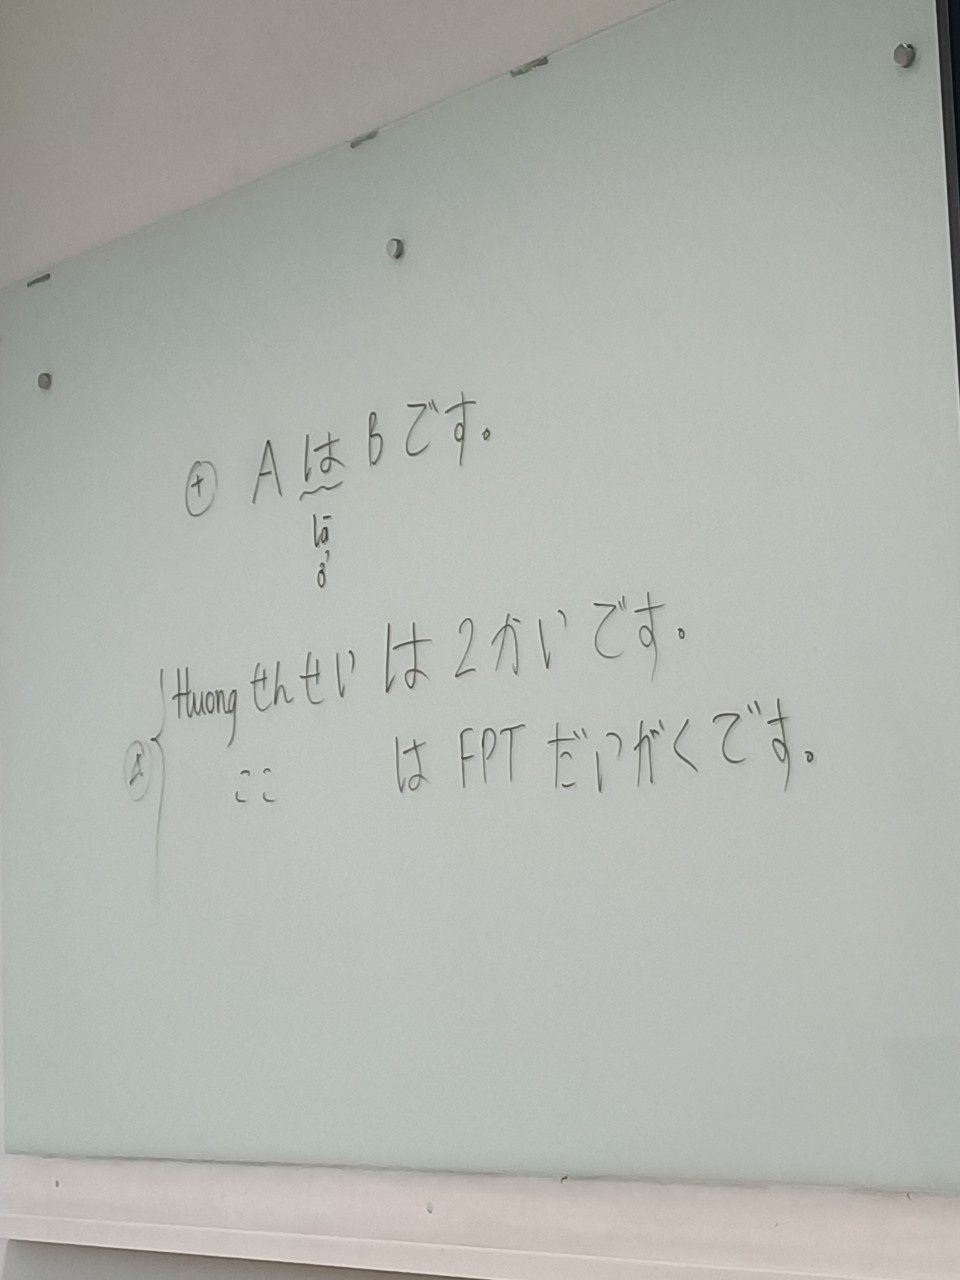 ⊕ A は B です。
là
ở
Huong せんせい は 2 かい です。
ここ は FPT だいがくです。